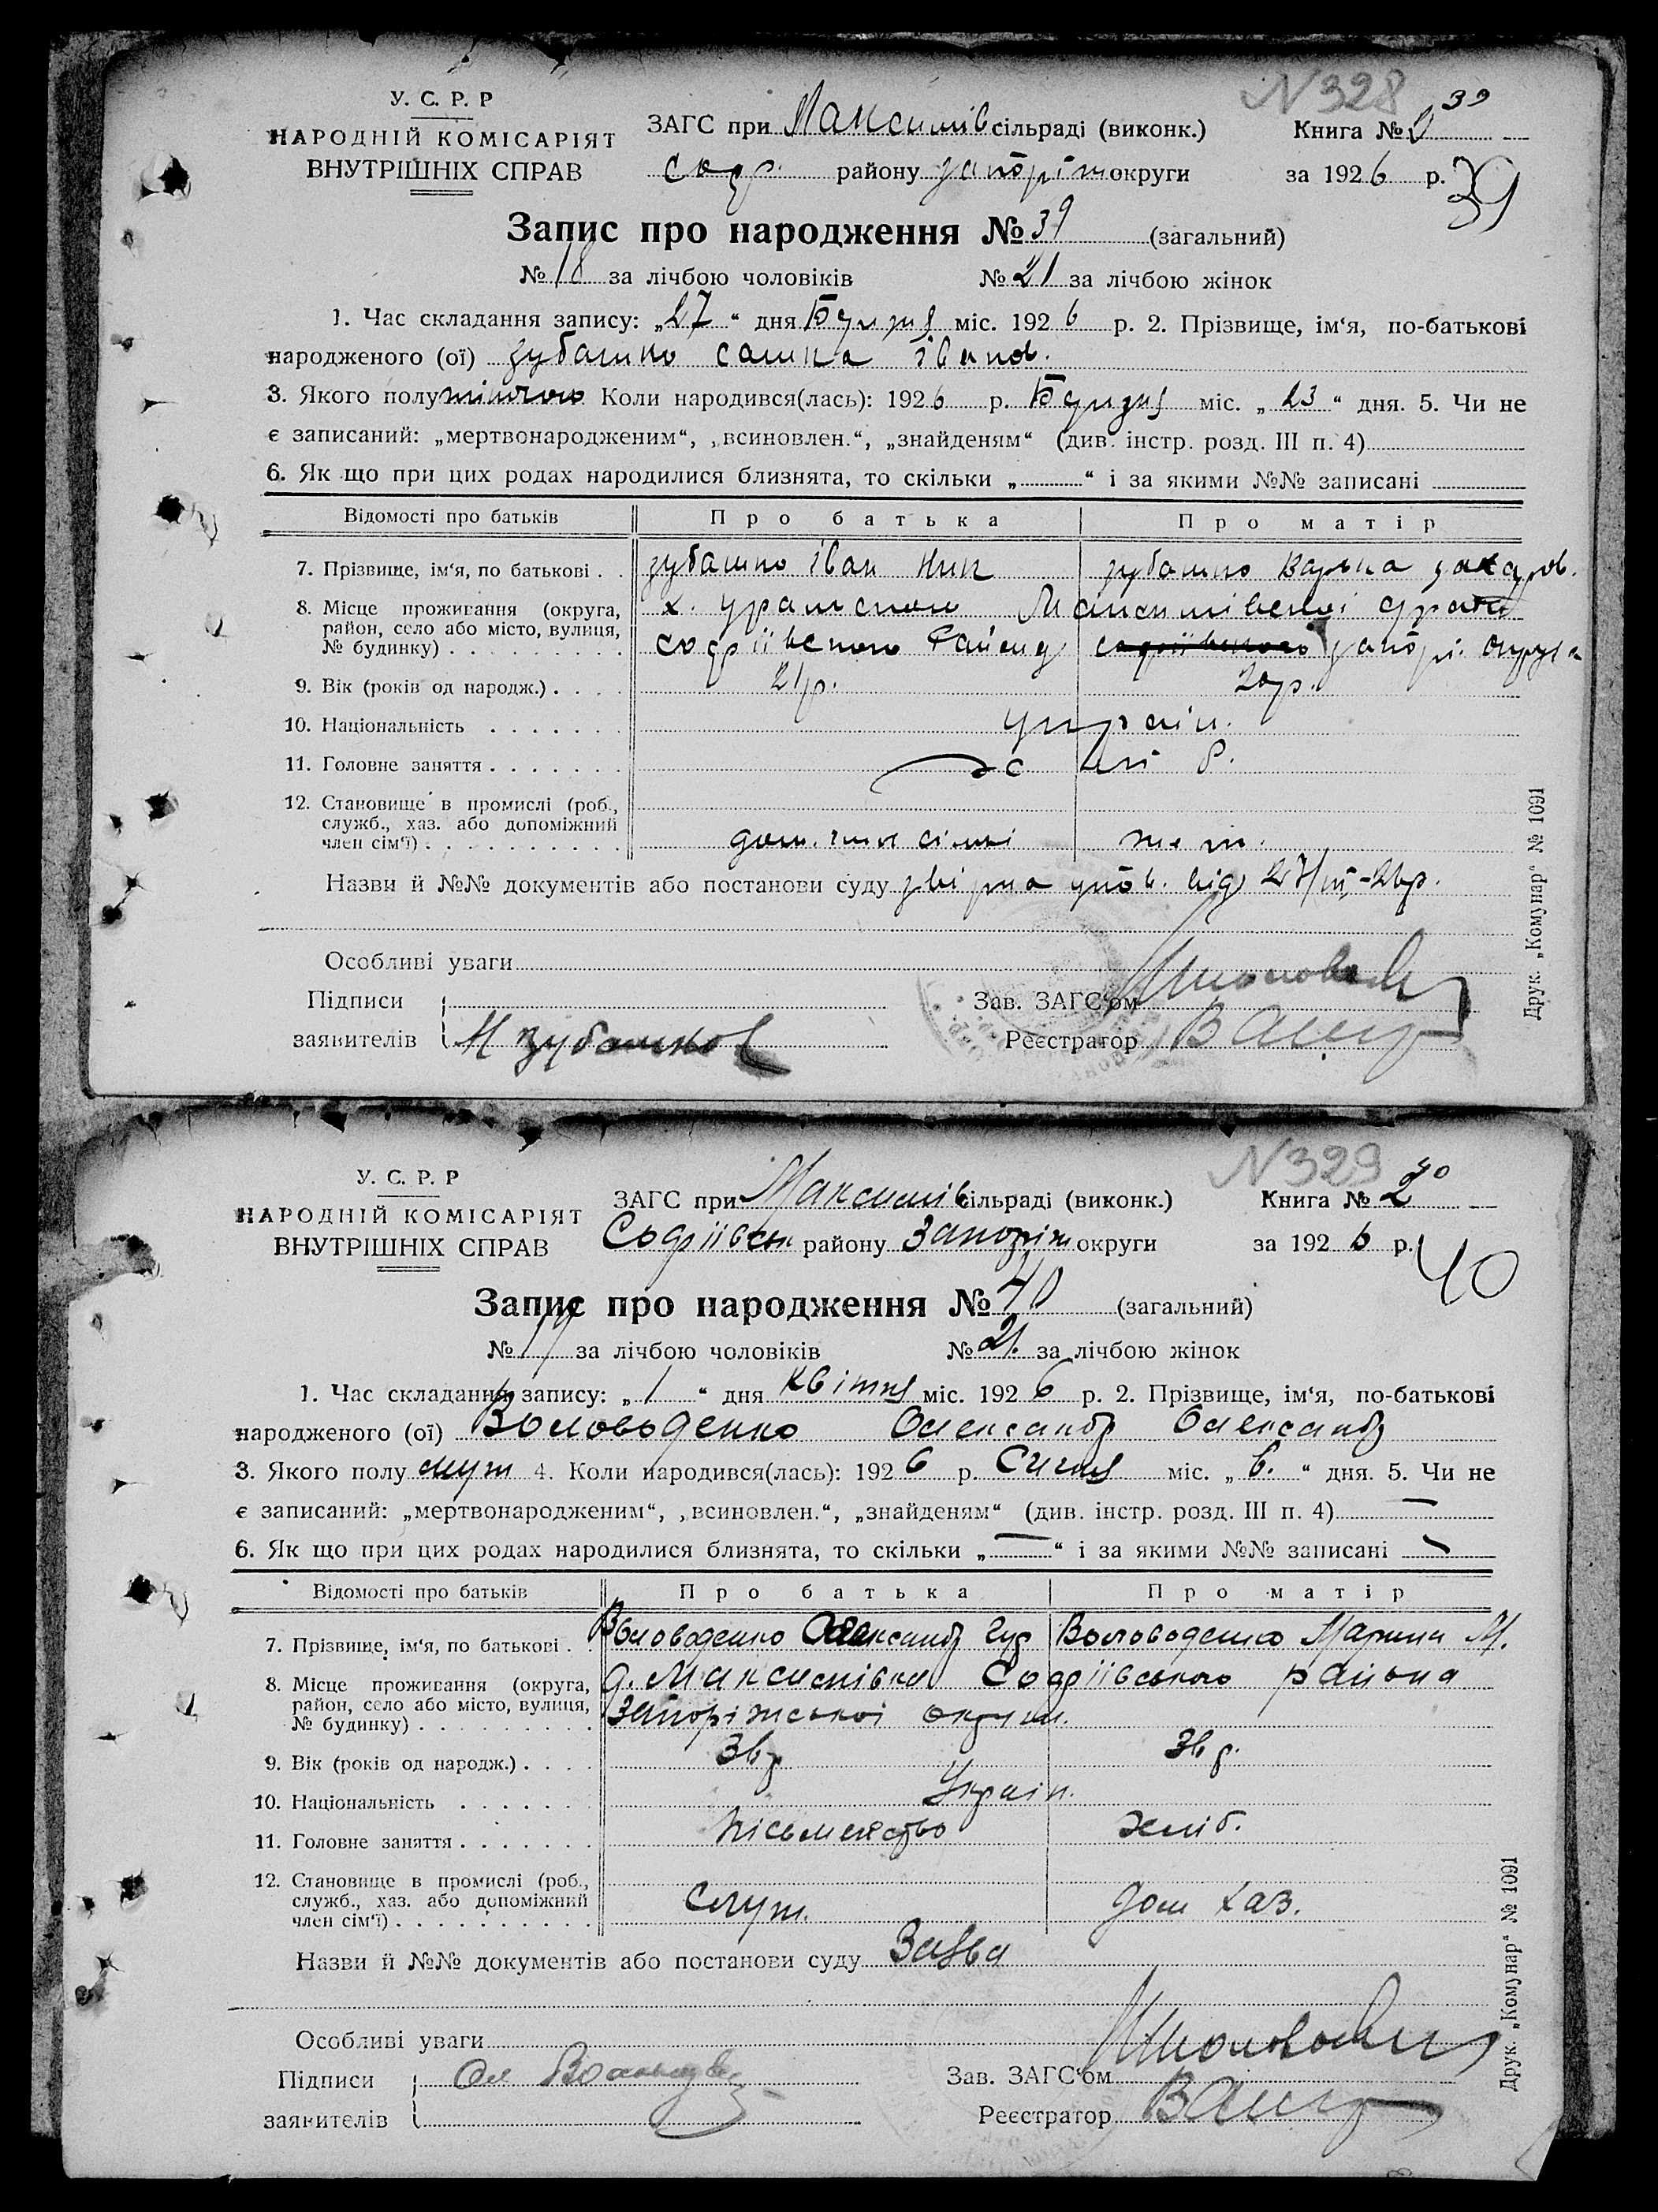 N 328
39
У. С. Р. Р
НАРОДНІЙ КОМІСАРІЯТ
ВНУТРІШНІХ СПРАВ
ЗАГС при Максимів сільраді (виконк.)
Соф. району запоріж округи
Книга №
за 1926 р.
39
Запис про народження № 39 (загальний)
№ 18 за лічбою чоловіків № 21 за лічбою жінок
1. Час складання запису: „27“ дня міс. 1926 р. 2. Прізвище, ім‘я, по-батькові
народженого (ої) зубашко сашка іванов.
3. Якого полу жіночого Коли народився(лась): 1926 р. міс. „23“ дня. 5. Чи не
є записаний: „мертвонародженим“, „всиновлен.“, „знайденям“ (див. інстр. розд. III п. 4)
6. Як що при цих родах народилися близнята, то скільки „ “ і за якими №№ записані
Відомості про батьків Про батька Про матір
7. Прізвище, ім‘я, по батькові . . зубашко іван Ник зубашко Варька захаров.
8. Місце проживання (округа, х. Максимівської
район, село або місто, вулиця, софіївського Району софіївського запорі. округа
№ будинку) . . . . . . . . .
9. Вік (років од народж.) . . . . 21р. 20р.
10. Національність . . . . . . . україн.
11. Головне заняття . . . . . . .
12. Становище в промислі (роб.,
служб., хаз. або допоміжний
член сім‘ї) . . . . . . . . . . дом. член сімї
Назви й №№ документів або постанови суду упов. від 27/III-26р.
Особливі уваги
Підписи
заявителів
Зав. ЗАГС‘ом
Реєстратор
Друк. „Комунар“ № 1091
N 329
40
У. С. Р. Р
НАРОДНІЙ КОМІСАРІЯТ
ВНУТРІШНІХ СПРАВ
ЗАГС при Максимів сільраді (виконк.)
Софіівськ району Запоріж округи
Книга № 2
за 1926 р.
40
Запис про народження № 40 (загальний)
№ 19 за лічбою чоловіків № 21. за лічбою жінок
1. Час складання запису: „1“ дня квітня міс. 1926 р. 2. Прізвище, ім‘я, по-батькові
народженого (ої) Воловоденко Олександр Олександр
3. Якого полу муж 4. Коли народився(лась): 1926 р. Січня міс. „6.“ дня. 5. Чи не
є записаний: „мертвонародженим“, „всиновлен.“, „знайденям“ (див. інстр. розд. III п. 4) —
6. Як що при цих родах народилися близнята, то скільки „—“ і за якими №№ записані —
Відомості про батьків Про батька Про матір
7. Прізвище, ім‘я, по батькові . Воловоденко Олександр Воловоденко Марина М.
8. Місце проживання (округа, Максимівка Софіівського района
район, село або місто, вулиця, Запоріжської округи.
№ будинку) . . . . . . . . .
9. Вік (років од народж.) . . . . 36р 36р.
10. Національність . . . . . . . Україн.
11. Головне заняття . . . . . . . пісьменство хліб.
12. Становище в промислі (роб.,
служб., хаз. або допоміжний
член сім‘ї) . . . . . . . . . . служ. дом хаз.
Назви й №№ документів або постанови суду Заява
Особливі уваги
Підписи
заявителів
Зав. ЗАГС‘ом
Реєстратор
Друк. „Комунар“ № 1091